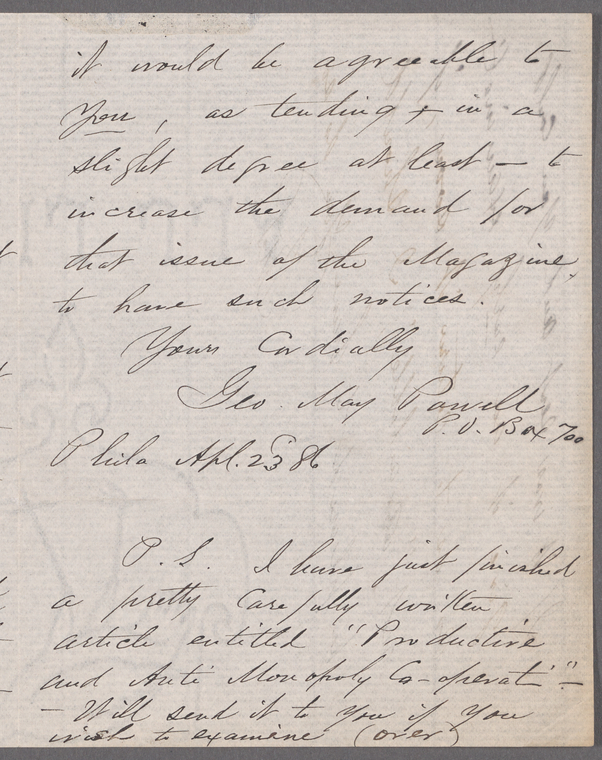 it would be agreeable to
you, as tending + in a
slight degree at least — to
increase the demand for
that issue of the Magazine,
to have such notices.
Yours Cordially
Geo. May Powell
P.O. Box 700
Phila Apl. 23 86
P.S. I have just finished
a pretty carefully written
article entitled "Productive
and Anti Monopoly Co-operati" —
– Will send it to you if you
wish to examine (over)